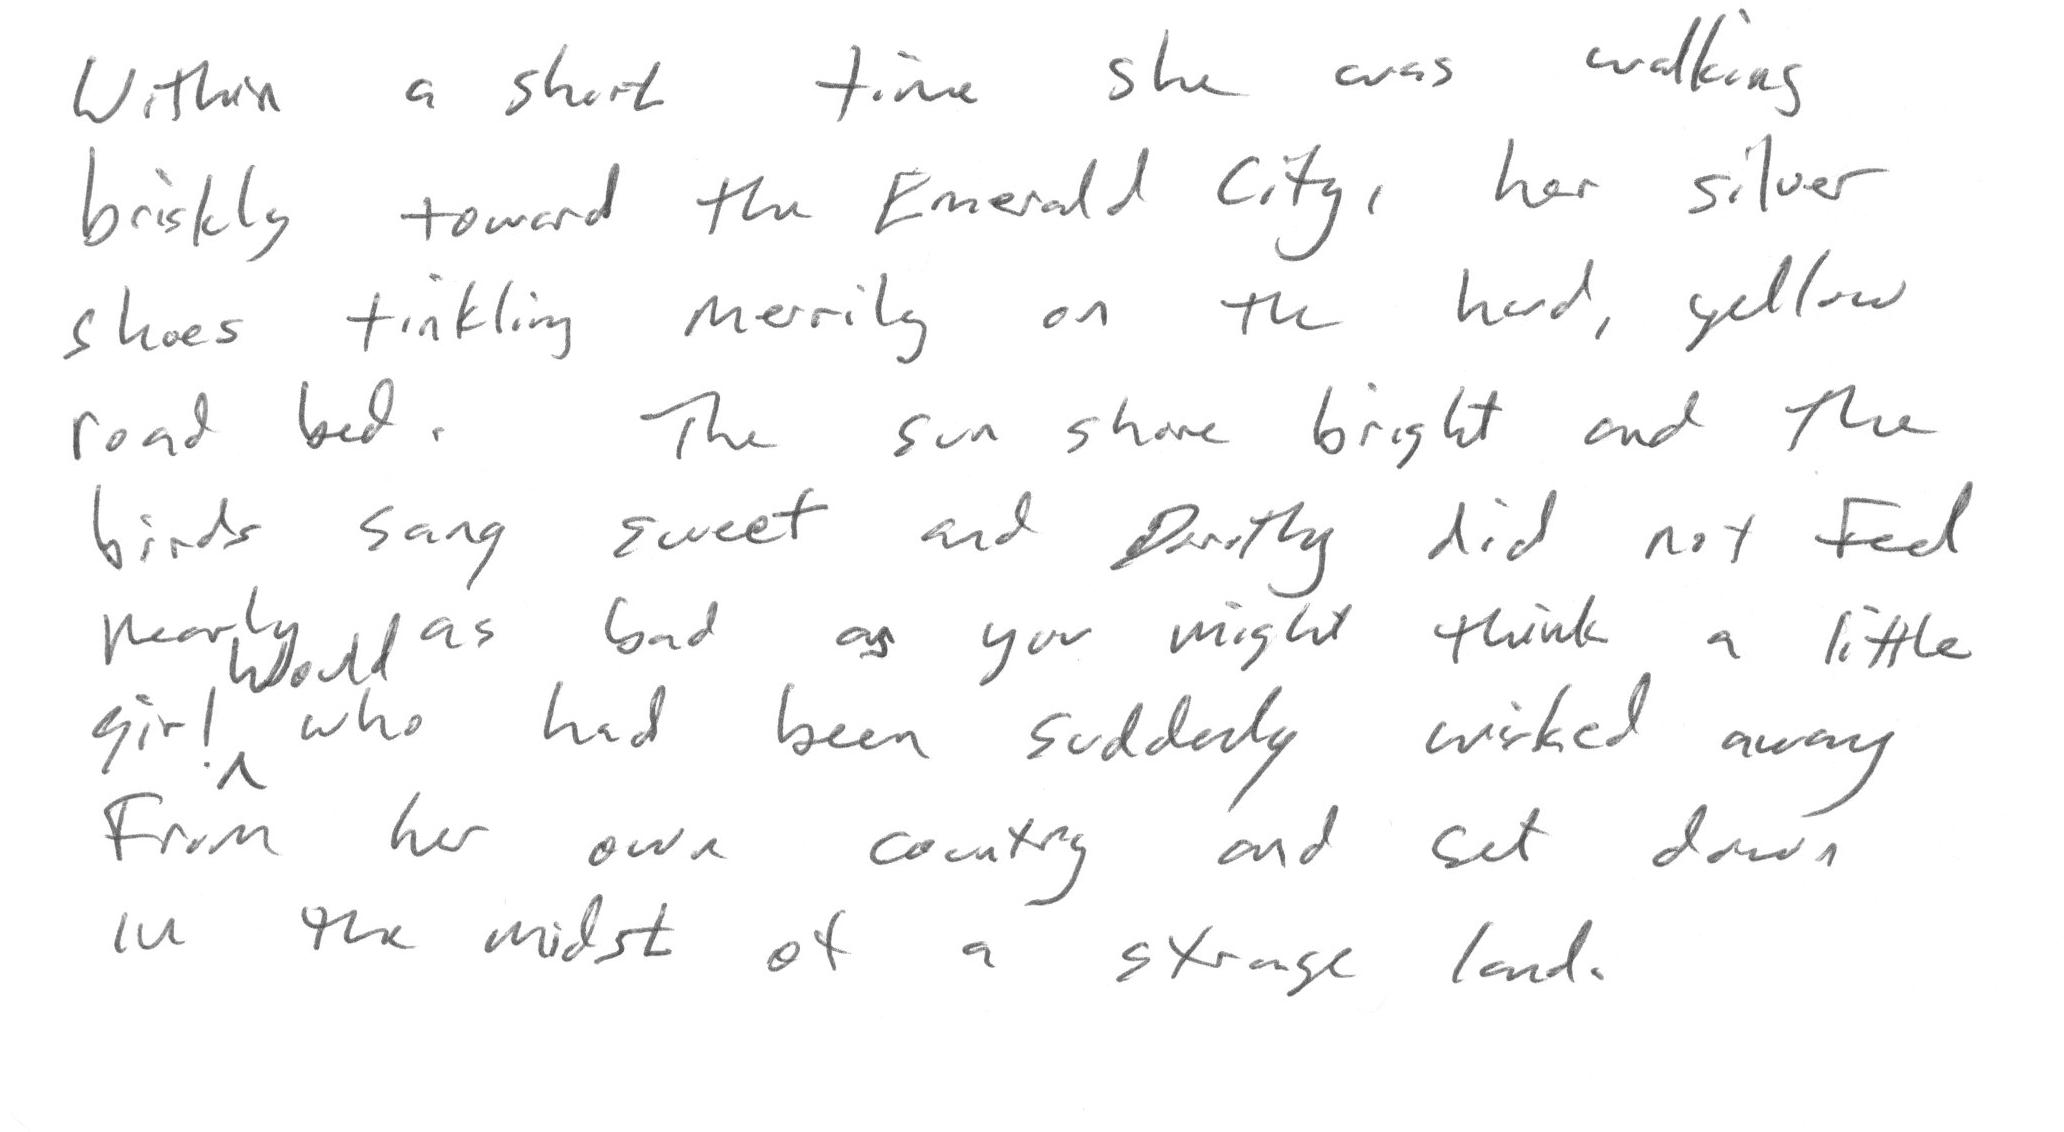 Within a short time she was walking
briskly toward the Emerald City, her silver
shoes tinkling merrily on the hard, yellow
road bed. The sun shone bright and the
birds sang sweet and Dorothy did not feel
nearly as bad as you might think a little
girl would who had been suddenly wisked away
From her own country and set down
in the midst of a strange land.